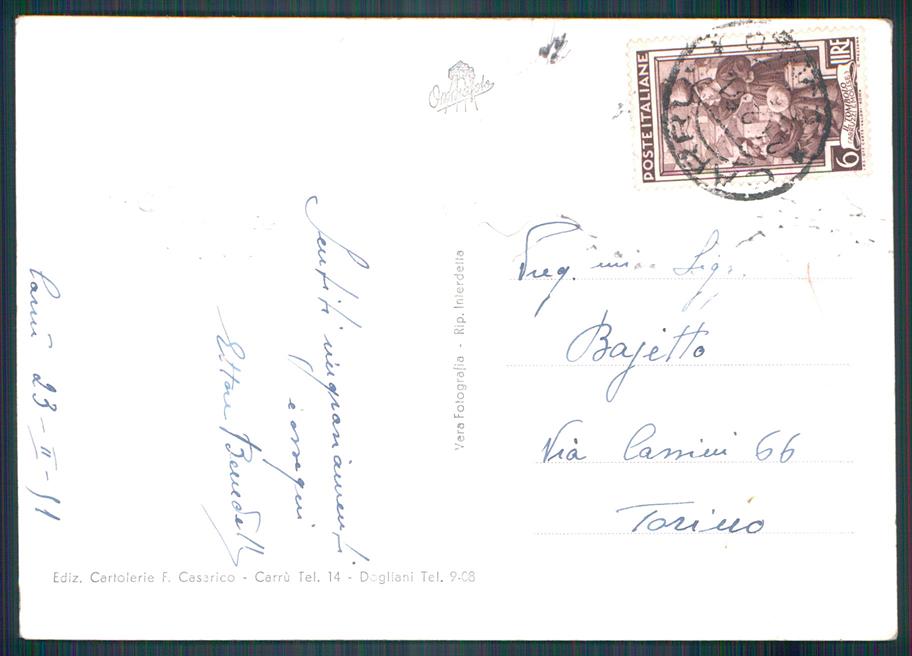 POSTE ITALIANE
LIRE
6
Preg. mo Sigr.
Bajetto
Via Cassini 66
Torino
Vera Fotografia - Rip. Interdetta
Sentiti ringraziamenti
e ossequi
Ettore Benedetti
Carrù 23-II-51
Ediz. Cartolerie F. Casarico - Carrù Tel. 14 - Dogliani Tel. 9-08